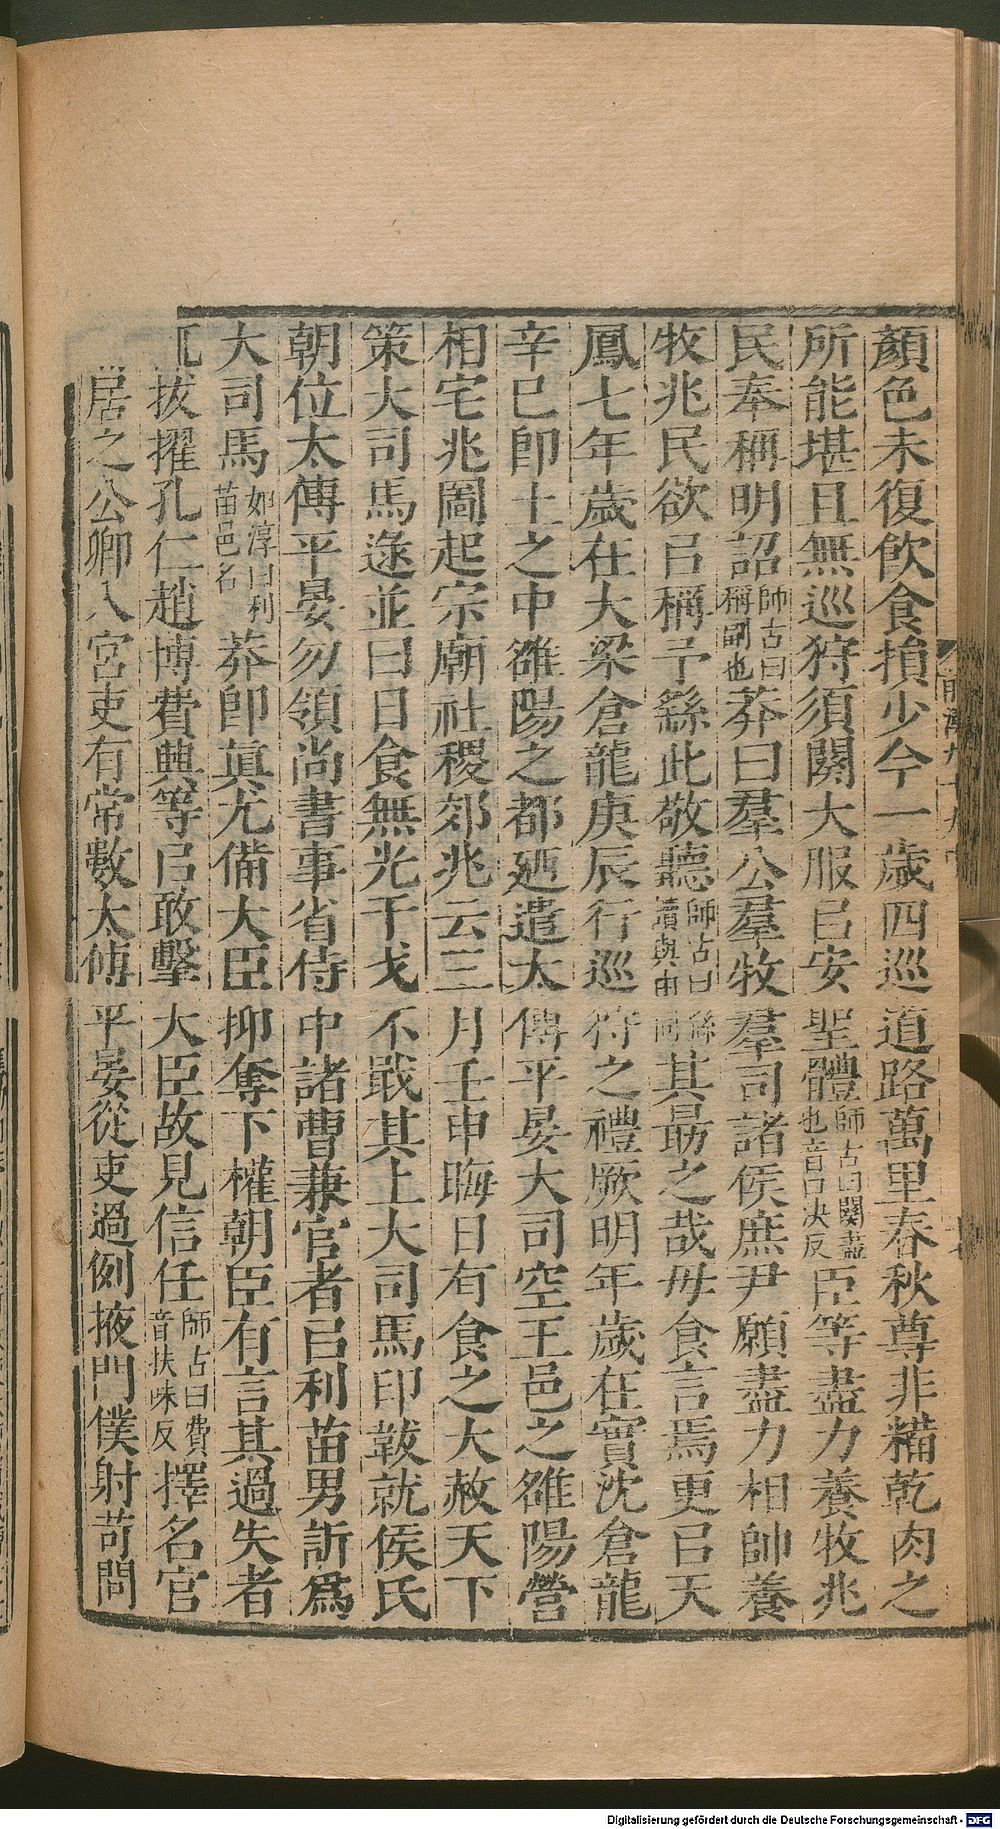 顏色未復飲食損少今一歲四巡道路萬里春秋尊非糒乾肉之
所能堪且無巡狩須闋大服㠯安聖體師古曰闋盡也音口決反臣等盡力養牧兆
民奉稱明詔師古曰稱副也莽曰羣公羣牧羣司諸侯庶尹願盡力相帥養
牧兆民欲㠯稱予繇此敬聽師古曰繇讀與由同其勗之哉毋食言焉更㠯天
鳳七年歲在大梁倉龍庚辰行巡狩之禮厥明年歲在實沈倉龍
辛巳卽土之中雒陽之都廼遣太傅平晏大司空王邑之雒陽營
相宅兆圖起宗廟社稷郊兆云三月壬申晦日有食之大赦天下
策大司馬逯並曰日食無光干戈不戢其上大司馬印韍就侯氏
朝位太傅平晏勿領尚書事省侍中諸曹兼官者㠯利苗男訢爲
大司馬如淳曰利苗邑名莽卽眞尤備大臣抑奪下權朝臣有言其過失者
拔擢孔仁趙博費興等㠯敢擊大臣故見信任師古曰費音扶味反擇名官
居之公卿入宮吏有常數太傅平晏從吏過例掖門僕射苛問
Digitalisierung gefördert durch die Deutsche Forschungsgemeinschaft - DFG